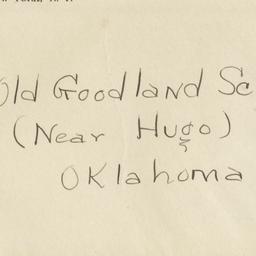 Old Goodland Sc
(Near Hugo)
Oklahoma